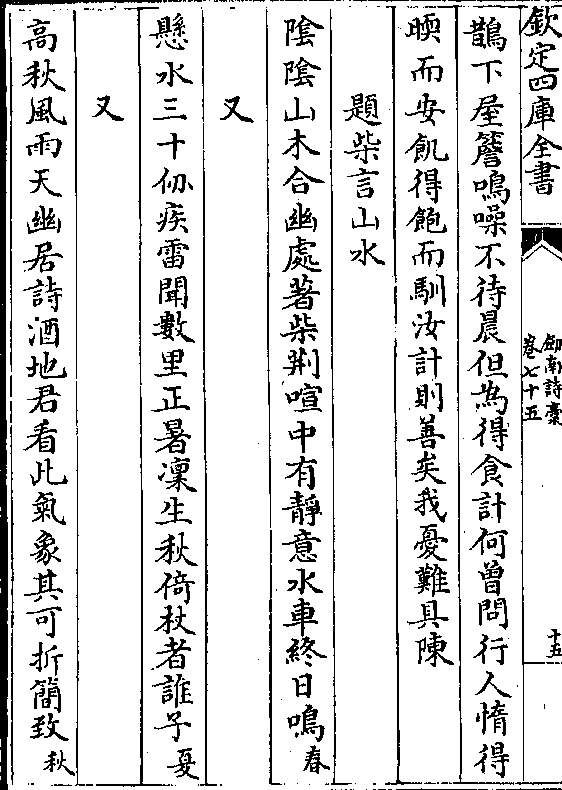 欽定四庫全書
劒南詩藁
卷七十五
十五
鵲下屋簷鳴噪不待晨但為得食計何曽問行人惰得
暝而安飢得飽而馴汝計則善矣我憂難具陳
題柴言山水
陰陰山木合幽處著柴荆喧中有靜意水車終日鳴春
又
懸水三十仞疾雷聞數里正暑凜生秋倚杖者誰子夏
又
高秋風雨天幽居詩酒地君看此氣象其可折簡致秋